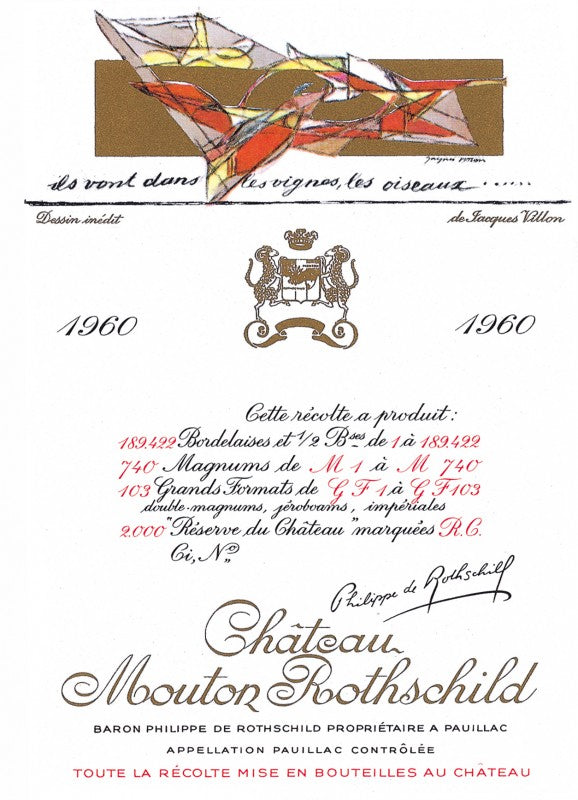 Jacques Villon
ils vont dans les vignes, les oiseaux......
Dessin inédit de Jacques Villon
1960 1960
Cette récolte a produit :
189.422 Bordelaises et 1/2 Bses de 1 à 189.422
740 Magnums de M 1 à M 740
103 Grands Formats de G F 1 à G F 103
double-magnums, jéroboams, impériales
2.000 "Réserve du Château" marquées R.C.
Ci, No
Philippe de Rothschild
Château
Mouton Rothschild
BARON PHILIPPE DE ROTHSCHILD PROPRIÉTAIRE A PAUILLAC
APPELLATION PAUILLAC CONTRÔLÉE
TOUTE LA RÉCOLTE MISE EN BOUTEILLES AU CHÂTEAU